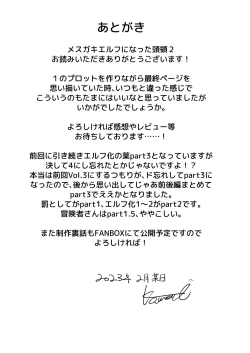 あとがき
メスガキエルフになった頭領2
お読みいただきありがとうございます！
1のプロットを作りながら最終ページを
思い描いていた時、いつもと違った感じで
こういうのもたまにはいいなと思っていましたが
いかがでしたでしょうか。
よろしければ感想やレビュー等
お待ちしております……！
前回に引き続きエルフ化の薬part3となっていますが
決して4にし忘れたとかじゃないですよ！？
本当は前回Vol.3にするつもりが、ド忘れしてpart3に
なったので、後から思い出してじゃあ前後編まとめて
part3でええかとなりました。
罰としてがpart1、エルフ化1～2がpart2です。
冒険者さんはpart1.5、ややこしい。
また制作裏話もFANBOXにて公開予定ですので
よろしければ！
2023年 2月某日